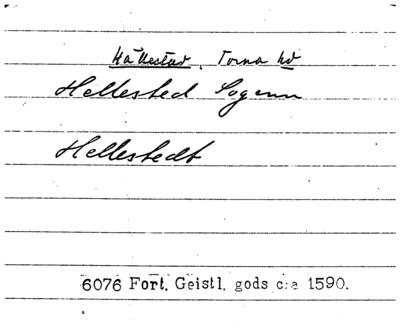 Hällestad, Torna hd
Hellested Sogenn
Hellestedt
6076 Fort. Geistl. gods c:a 1590.